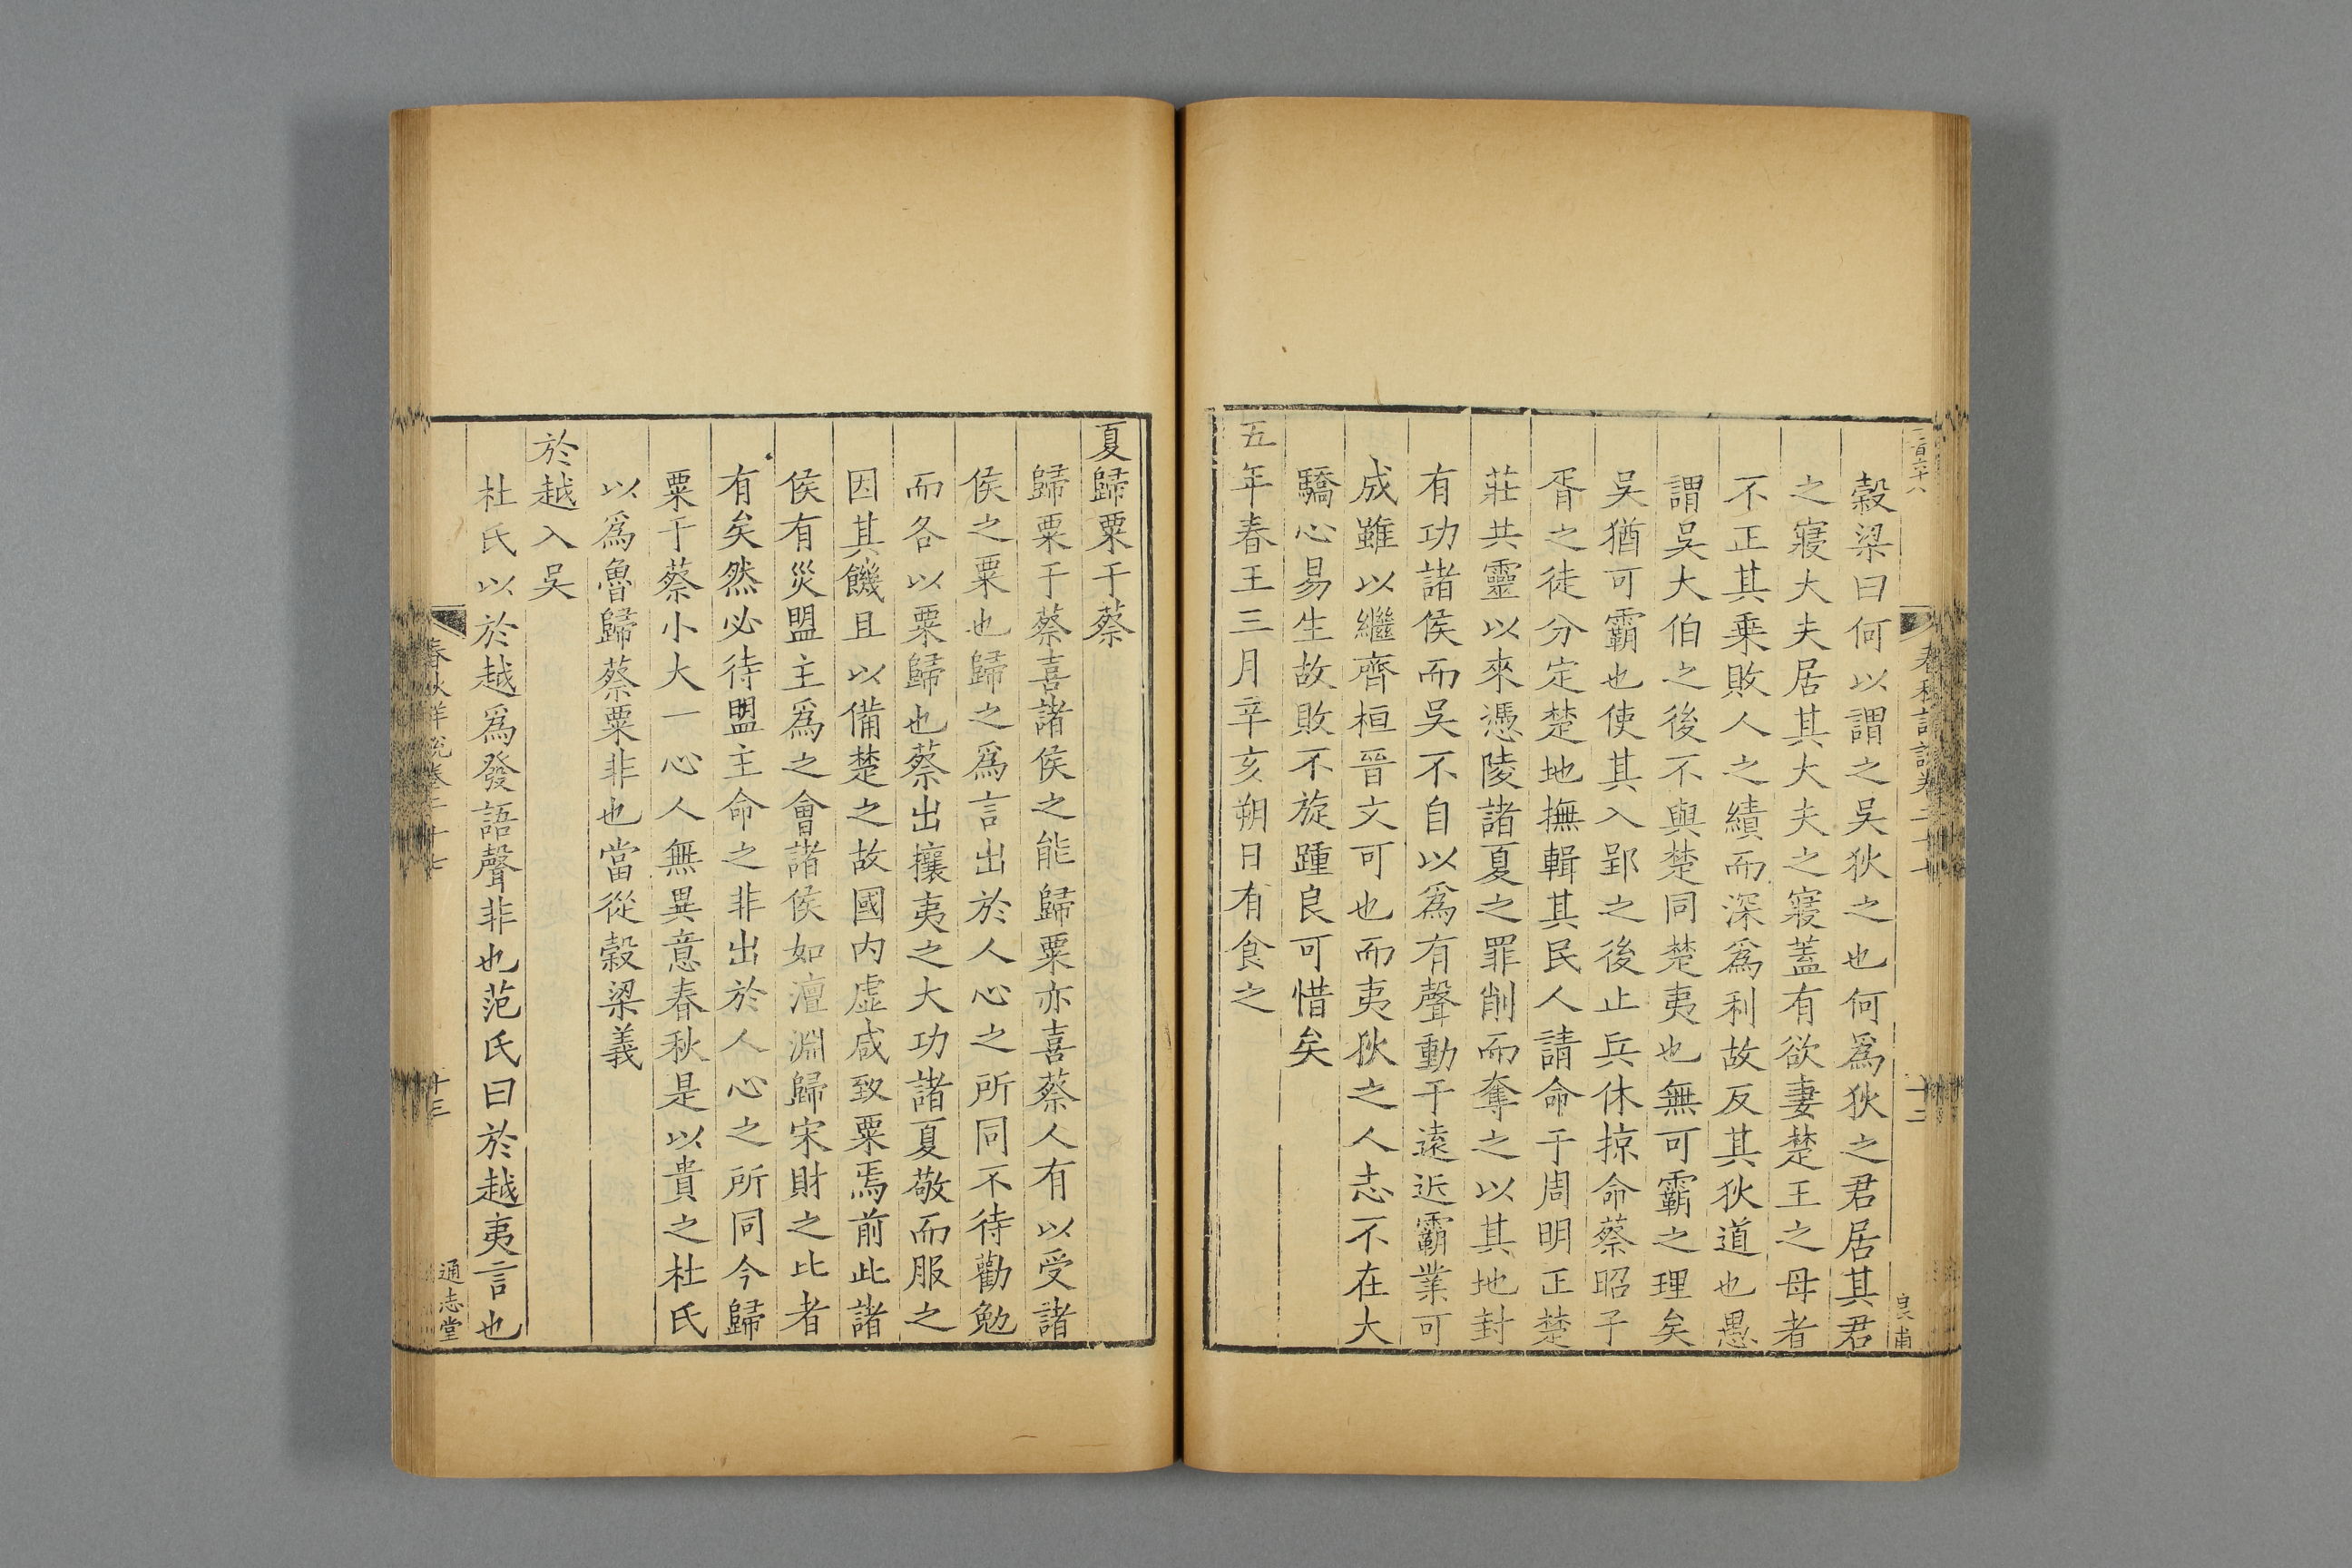 二百六十八
穀梁曰何以謂之吳狄之也何爲狄之君居其君
之寢大夫居其大夫之寢蓋有欲妻楚王之母者
不正其乗敗人之績而深爲利故反其狄道也愚
謂吳大伯之後不與楚同楚夷也無可霸之理矣
吳猶可霸也使其入郢之後止兵休掠命蔡昭子
胥之徒分定楚地撫輯其民人請命于周明正楚
莊共靈以來憑陵諸夏之罪削而奪之以其地封
有功諸侯而吳不自以爲有聲動于遠近霸業可
成雖以繼齊桓晉文可也而夷狄之人志不在大
驕心易生故敗不旋踵良可惜矣
五年春王三月辛亥朔日有食之
夏歸粟于蔡
歸粟于蔡喜諸侯之能歸粟亦喜蔡人有以受諸
侯之粟也歸之爲言出於人心之所同不待勸勉
而各以粟歸也蔡出攘夷之大功諸夏敬而服之
因其饑且以備楚之故國内虚咸致粟焉前此諸
侯有災盟主爲之會諸侯如澶淵歸宋財之比者
有矣然必待盟主命之非出於人心之所同今歸
粟于蔡小大一心人無異意春秋是以貴之杜氏
以爲魯歸蔡粟非也當從穀梁義
於越入吳
杜氏以於越爲發語聲非也范氏曰於越夷言也
春秋詳說卷二十七
十三
通志堂